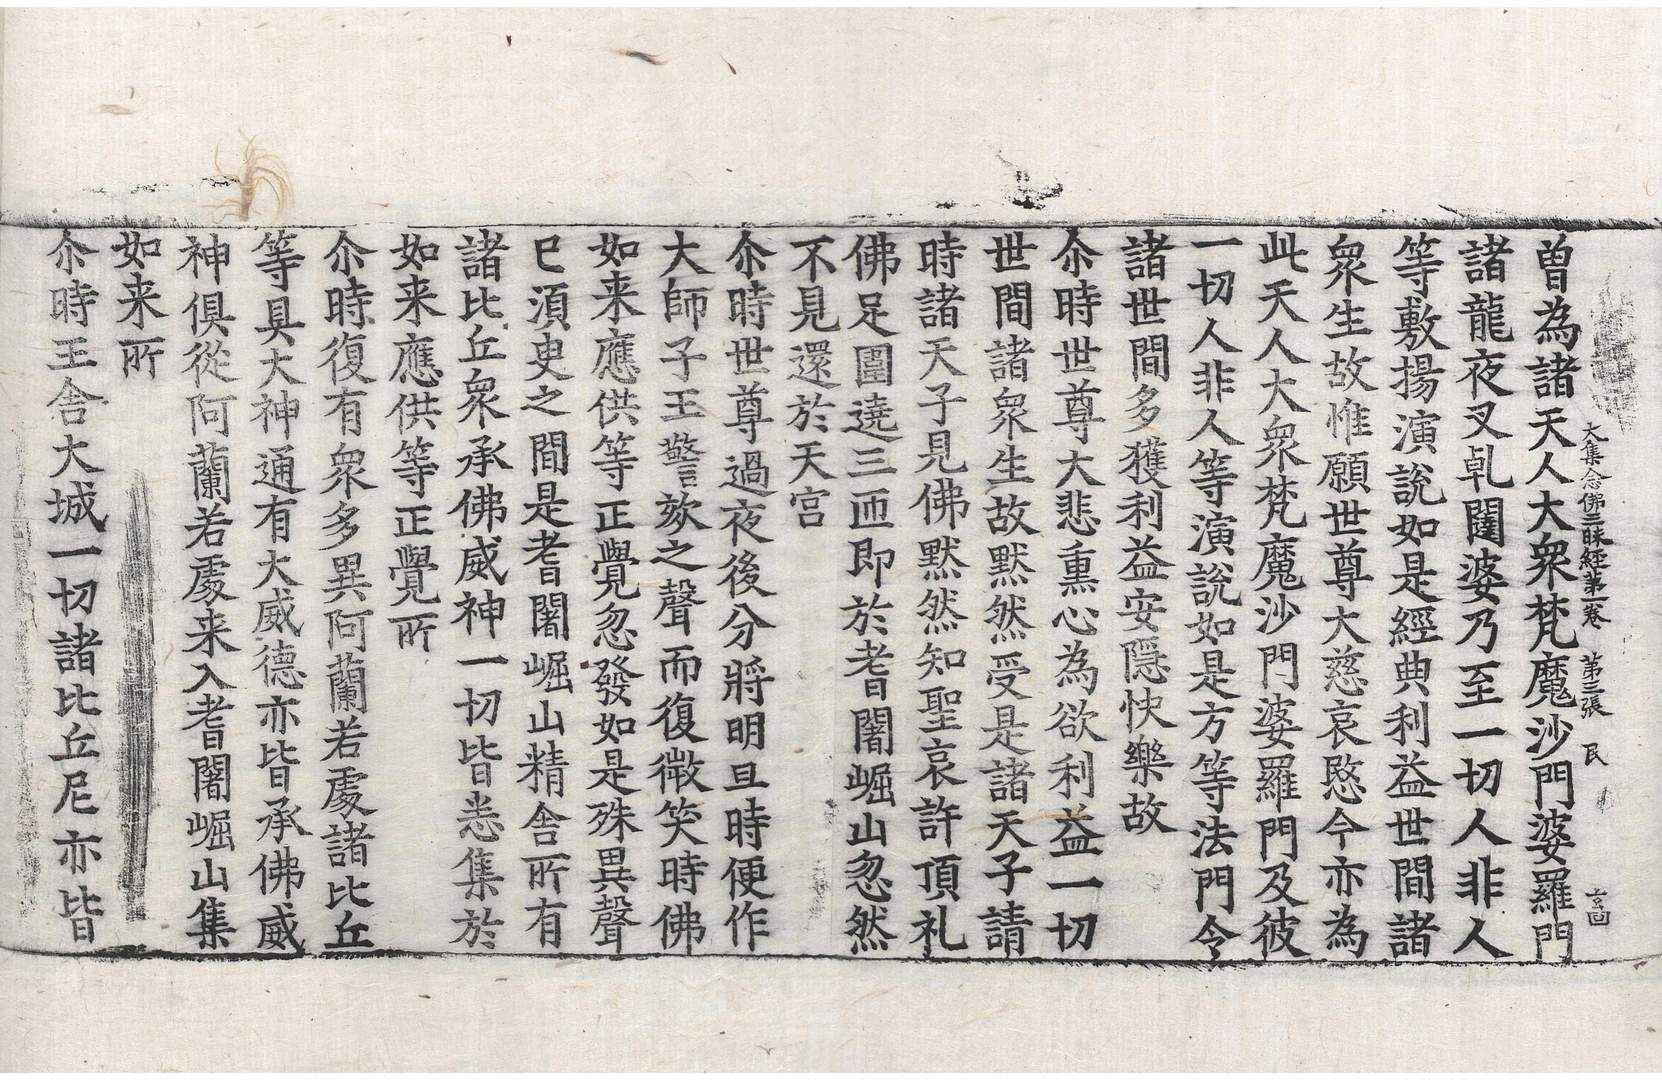 大集念佛三昧經第一卷 第三張 民 玄囬
曽為諸天人大衆梵魔沙門婆羅門
諸龍夜叉乹闥婆乃至一切人非人
等敷揚演說如是經典利益世間諸
衆生故惟願世尊大慈哀愍今亦為
此天人大衆梵魔沙門婆羅門及彼
一切人非人等演說如是方等法門令
諸世間多獲利益安隱快樂故
尒時世尊大悲熏心為欲利益一切
世間諸衆生故默然受是諸天子請
時諸天子見佛默然知聖哀許頂礼
佛足圍遶三匝即於耆闍崛山忽然
不見還於天宮
尒時世尊過夜後分將明旦時便作
大師子王謦欬之聲而復微笑時佛
如来應供等正覺忽發如是殊異聲
已須臾之間是耆闍崛山精舍所有
諸比丘衆承佛威神一切皆悉集於
如来應供等正覺所
尒時復有衆多異阿蘭若處諸比丘
等具大神通有大威德亦皆承佛威
神俱從阿蘭若處来入耆闍崛山集
如来所
尒時王舍大城一切諸比丘尼亦皆